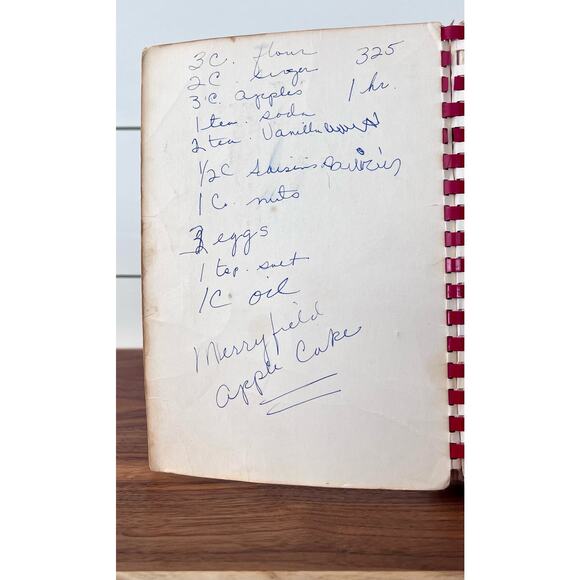 3 C. flour 325
2 C. suger
3 C. apples 1 hr.
1 tea. soda
2 tea. Vanilla
1/2 C raisins
1 C. nuts
eggs
1 tsp. salt
1 C oil
Merryfield
apple Cake